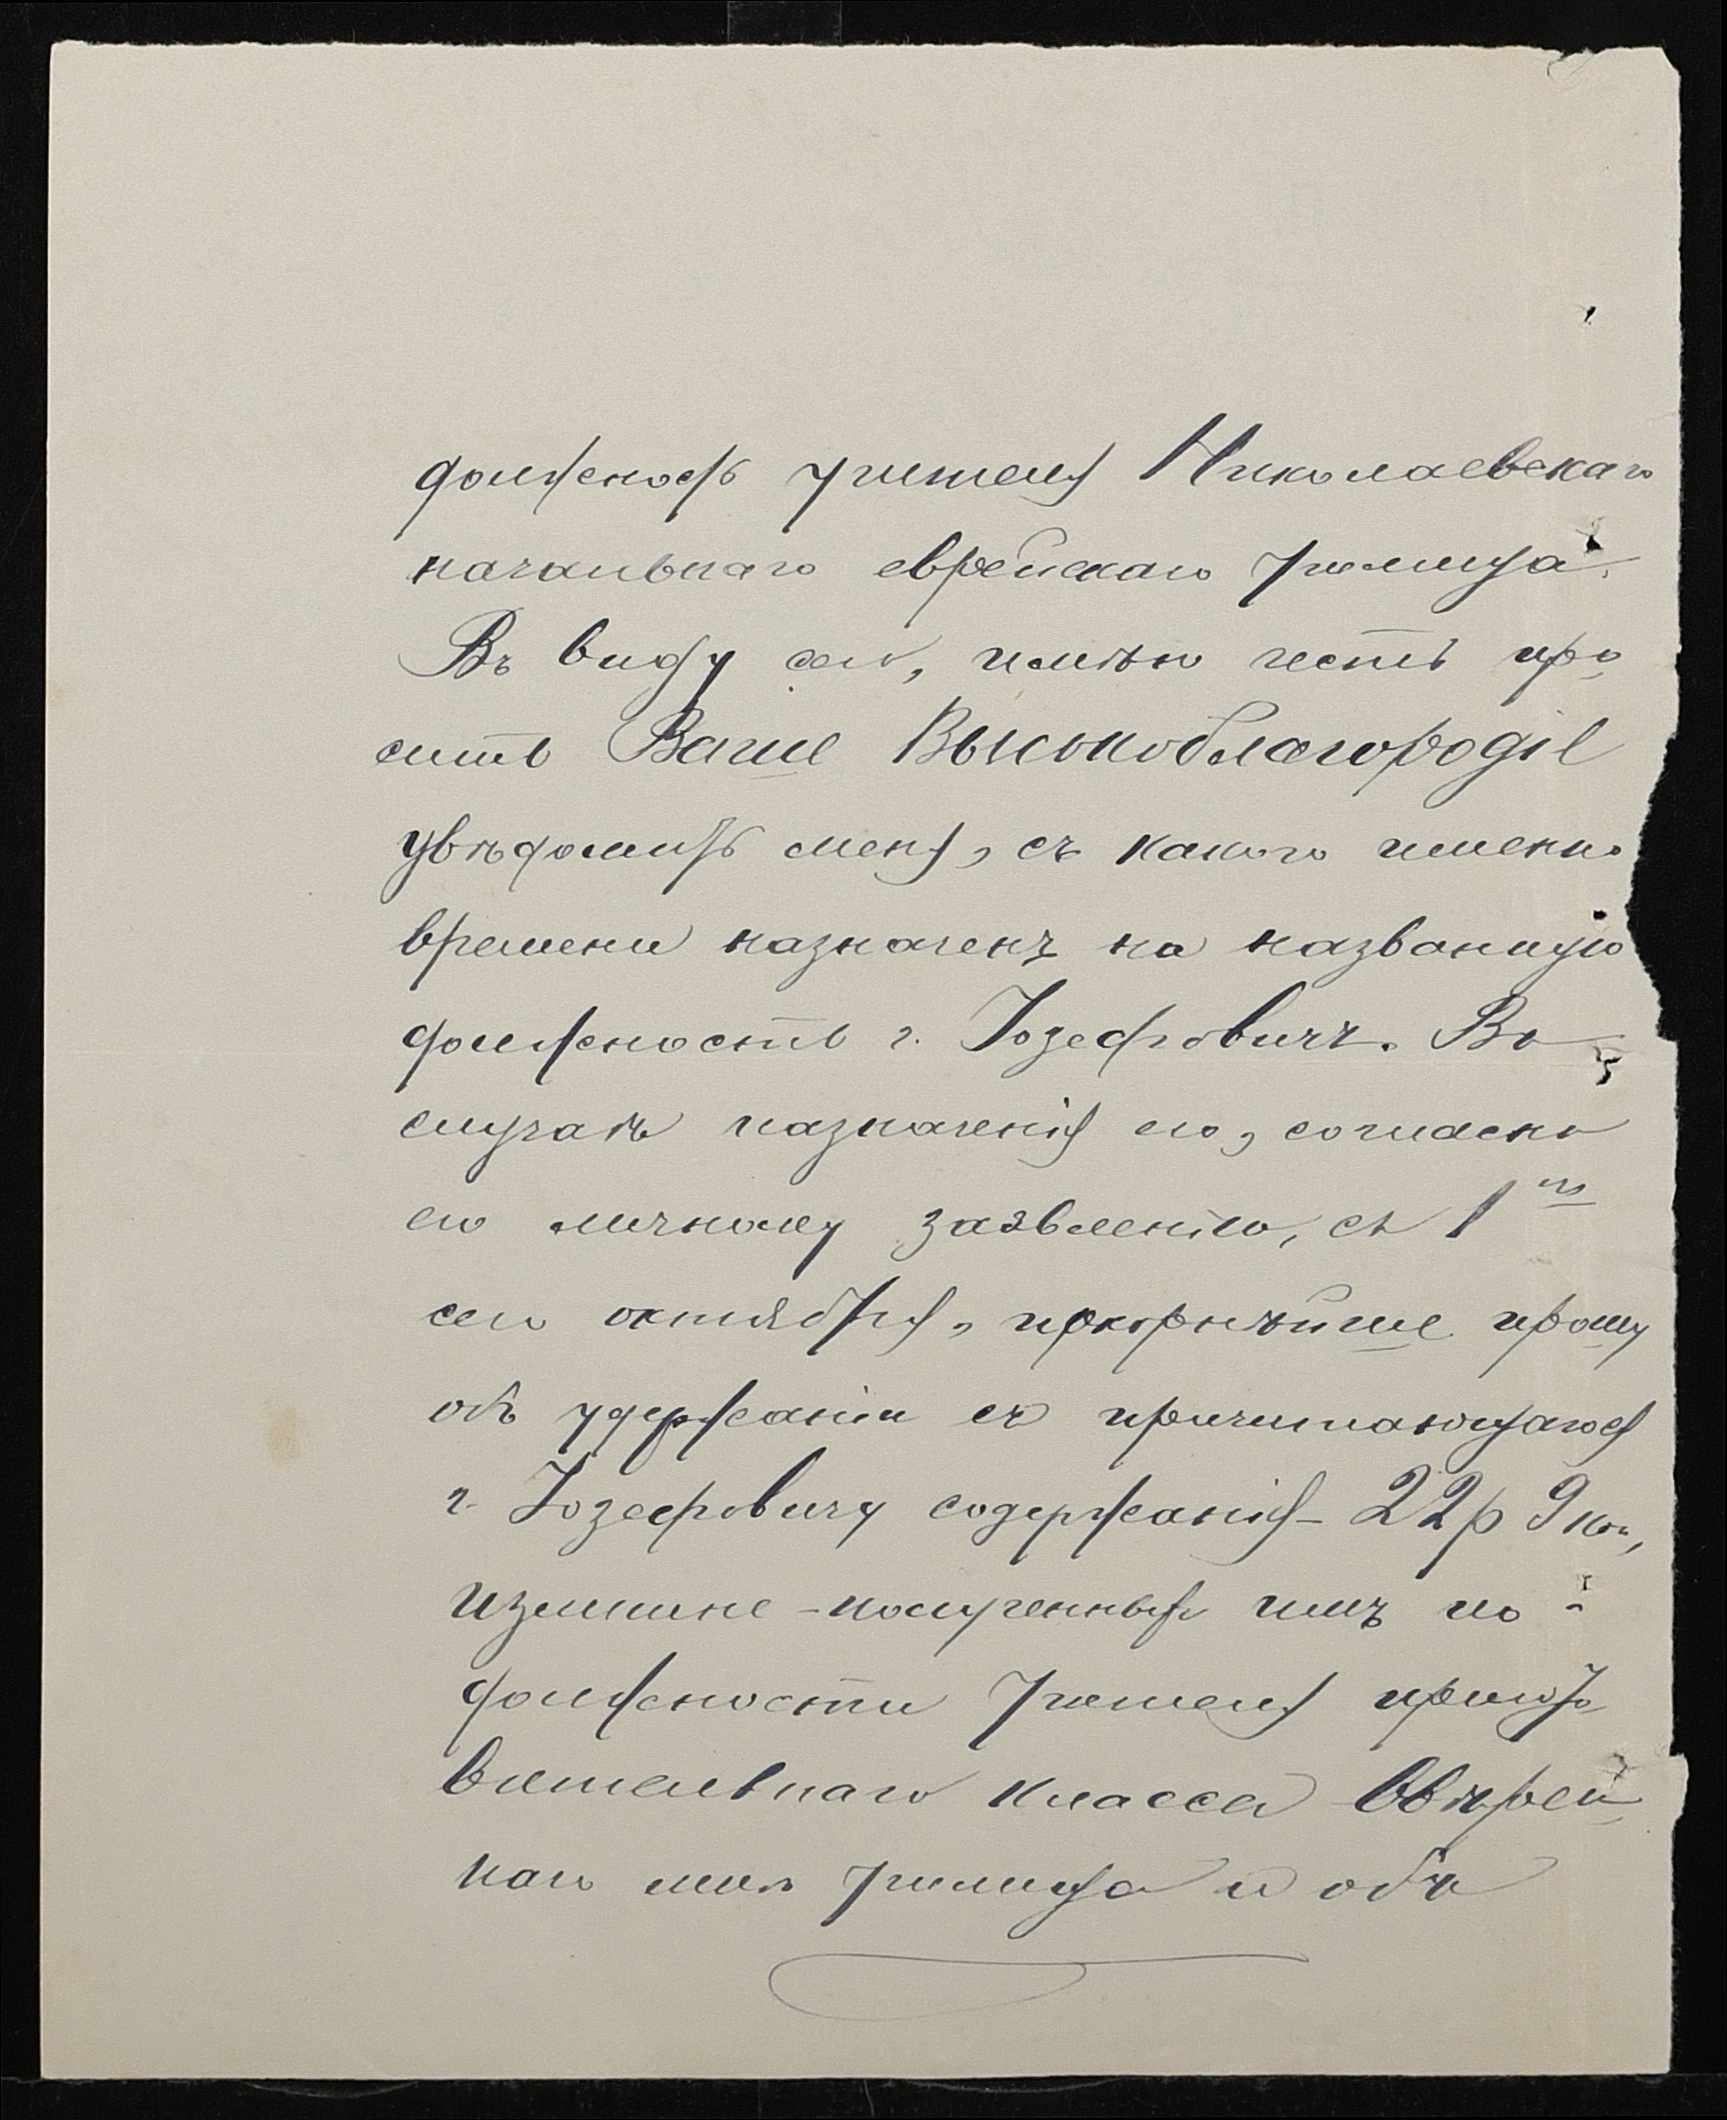 должность учителя Николаевскаго
начальнаго еврейскаго училища.
Въ виду сего, имѣю честь про
сить Ваше Высокоблагородіе
увѣдомить меня, съ какого именно
времени назначенъ на названную
должность г. Іозефовичъ. Въ
случаѣ назначенія его, согласно
его личному заявленію, съ 1го
сего октября, покорнѣйше прошу
объ удержаніи съ причитающагося
г. Іозефовичу содержанія - 22 р 9 коп,
излишне-полученныя имъ по
должности учителя пригото
вительнаго класса ввѣрен
наго мнѣ училища и объ